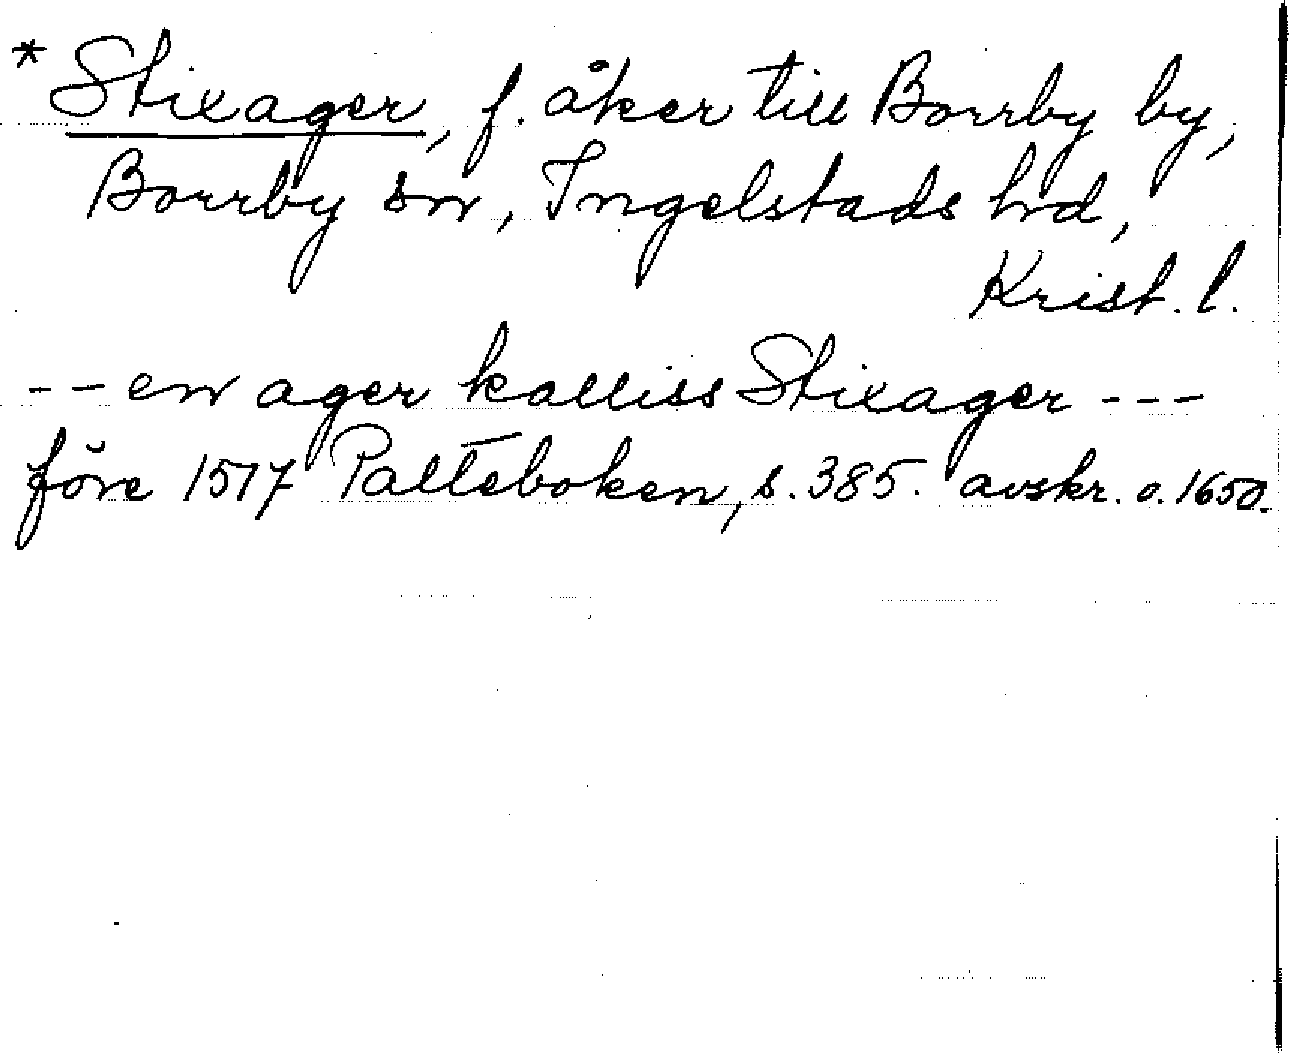 * Stixager, f. åker till Borrby by,
Borrby sn, Ingelstads hrd,
Krist. l.
-- en ager kalliss Stixager ---
före 1517 Palteboken, s. 385. avskr. o. 1650.